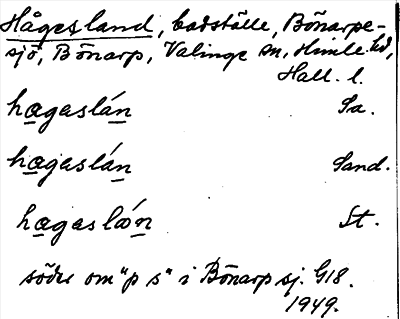 Hågesland, badställe, Bönarpe-
sjö, Bönarp, Valinge sn, Himle hd,
Hall. l.
hægaslán Sa.
hægaslán Sand.
hægaslǽn St.
söder om "p s" i Bönarp sj. G18.
1949.